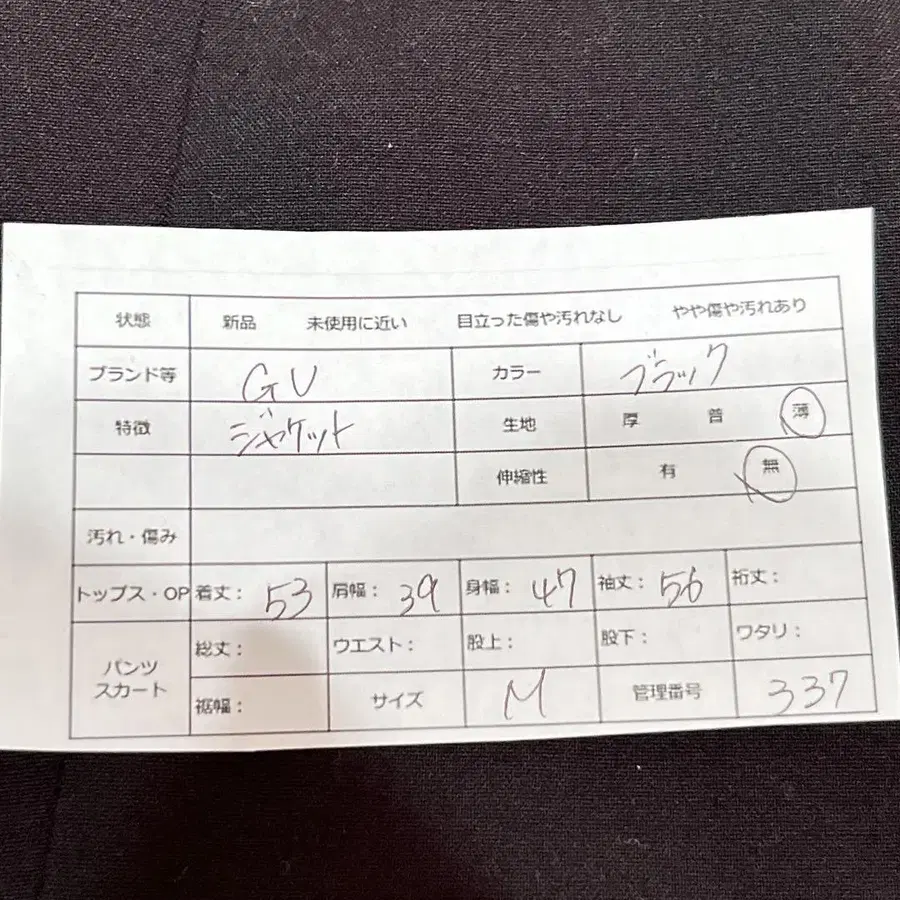 状態 新品 未使用に近い 目立った傷や汚れなし やや傷や汚れあり
ブランド等 GU カラー ブラック
特徴 ジャケット 生地 厚 普 薄
伸縮性 有 無
汚れ・傷み
トップス・OP 着丈： 53 肩幅： 39 身幅： 47 袖丈： 56 裄丈：
パンツ スカート 総丈： ウエスト： 股上： 股下： ワタリ：
裾幅： サイズ M 管理番号 337